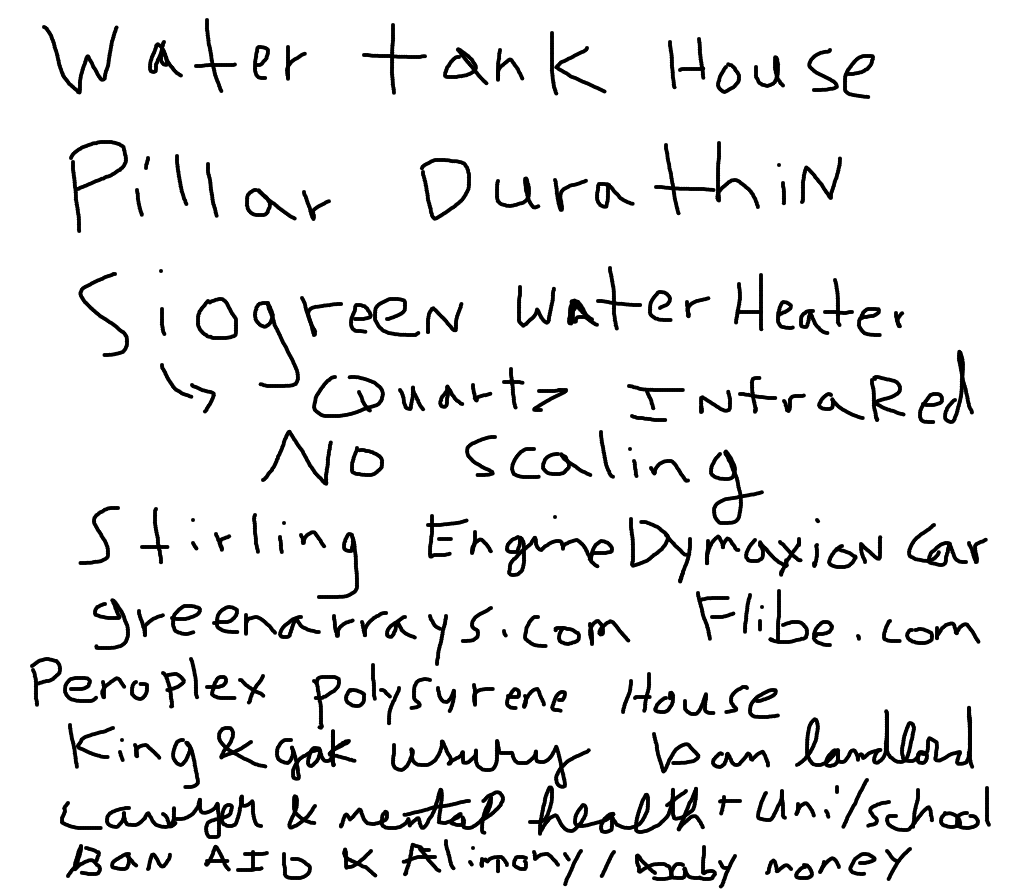 Water tank House
Pillar Durathin
Siogreen Water Heater
↳ Quartz InfraRed
No scaling
Stirling Engine Dymaxion Car
greenarrays.com Flibe.com
Penoplex polysyrene House
King & gak usury ban landlord
Lawyer & mental health + Uni/school
Ban AID & Alimony / baby money